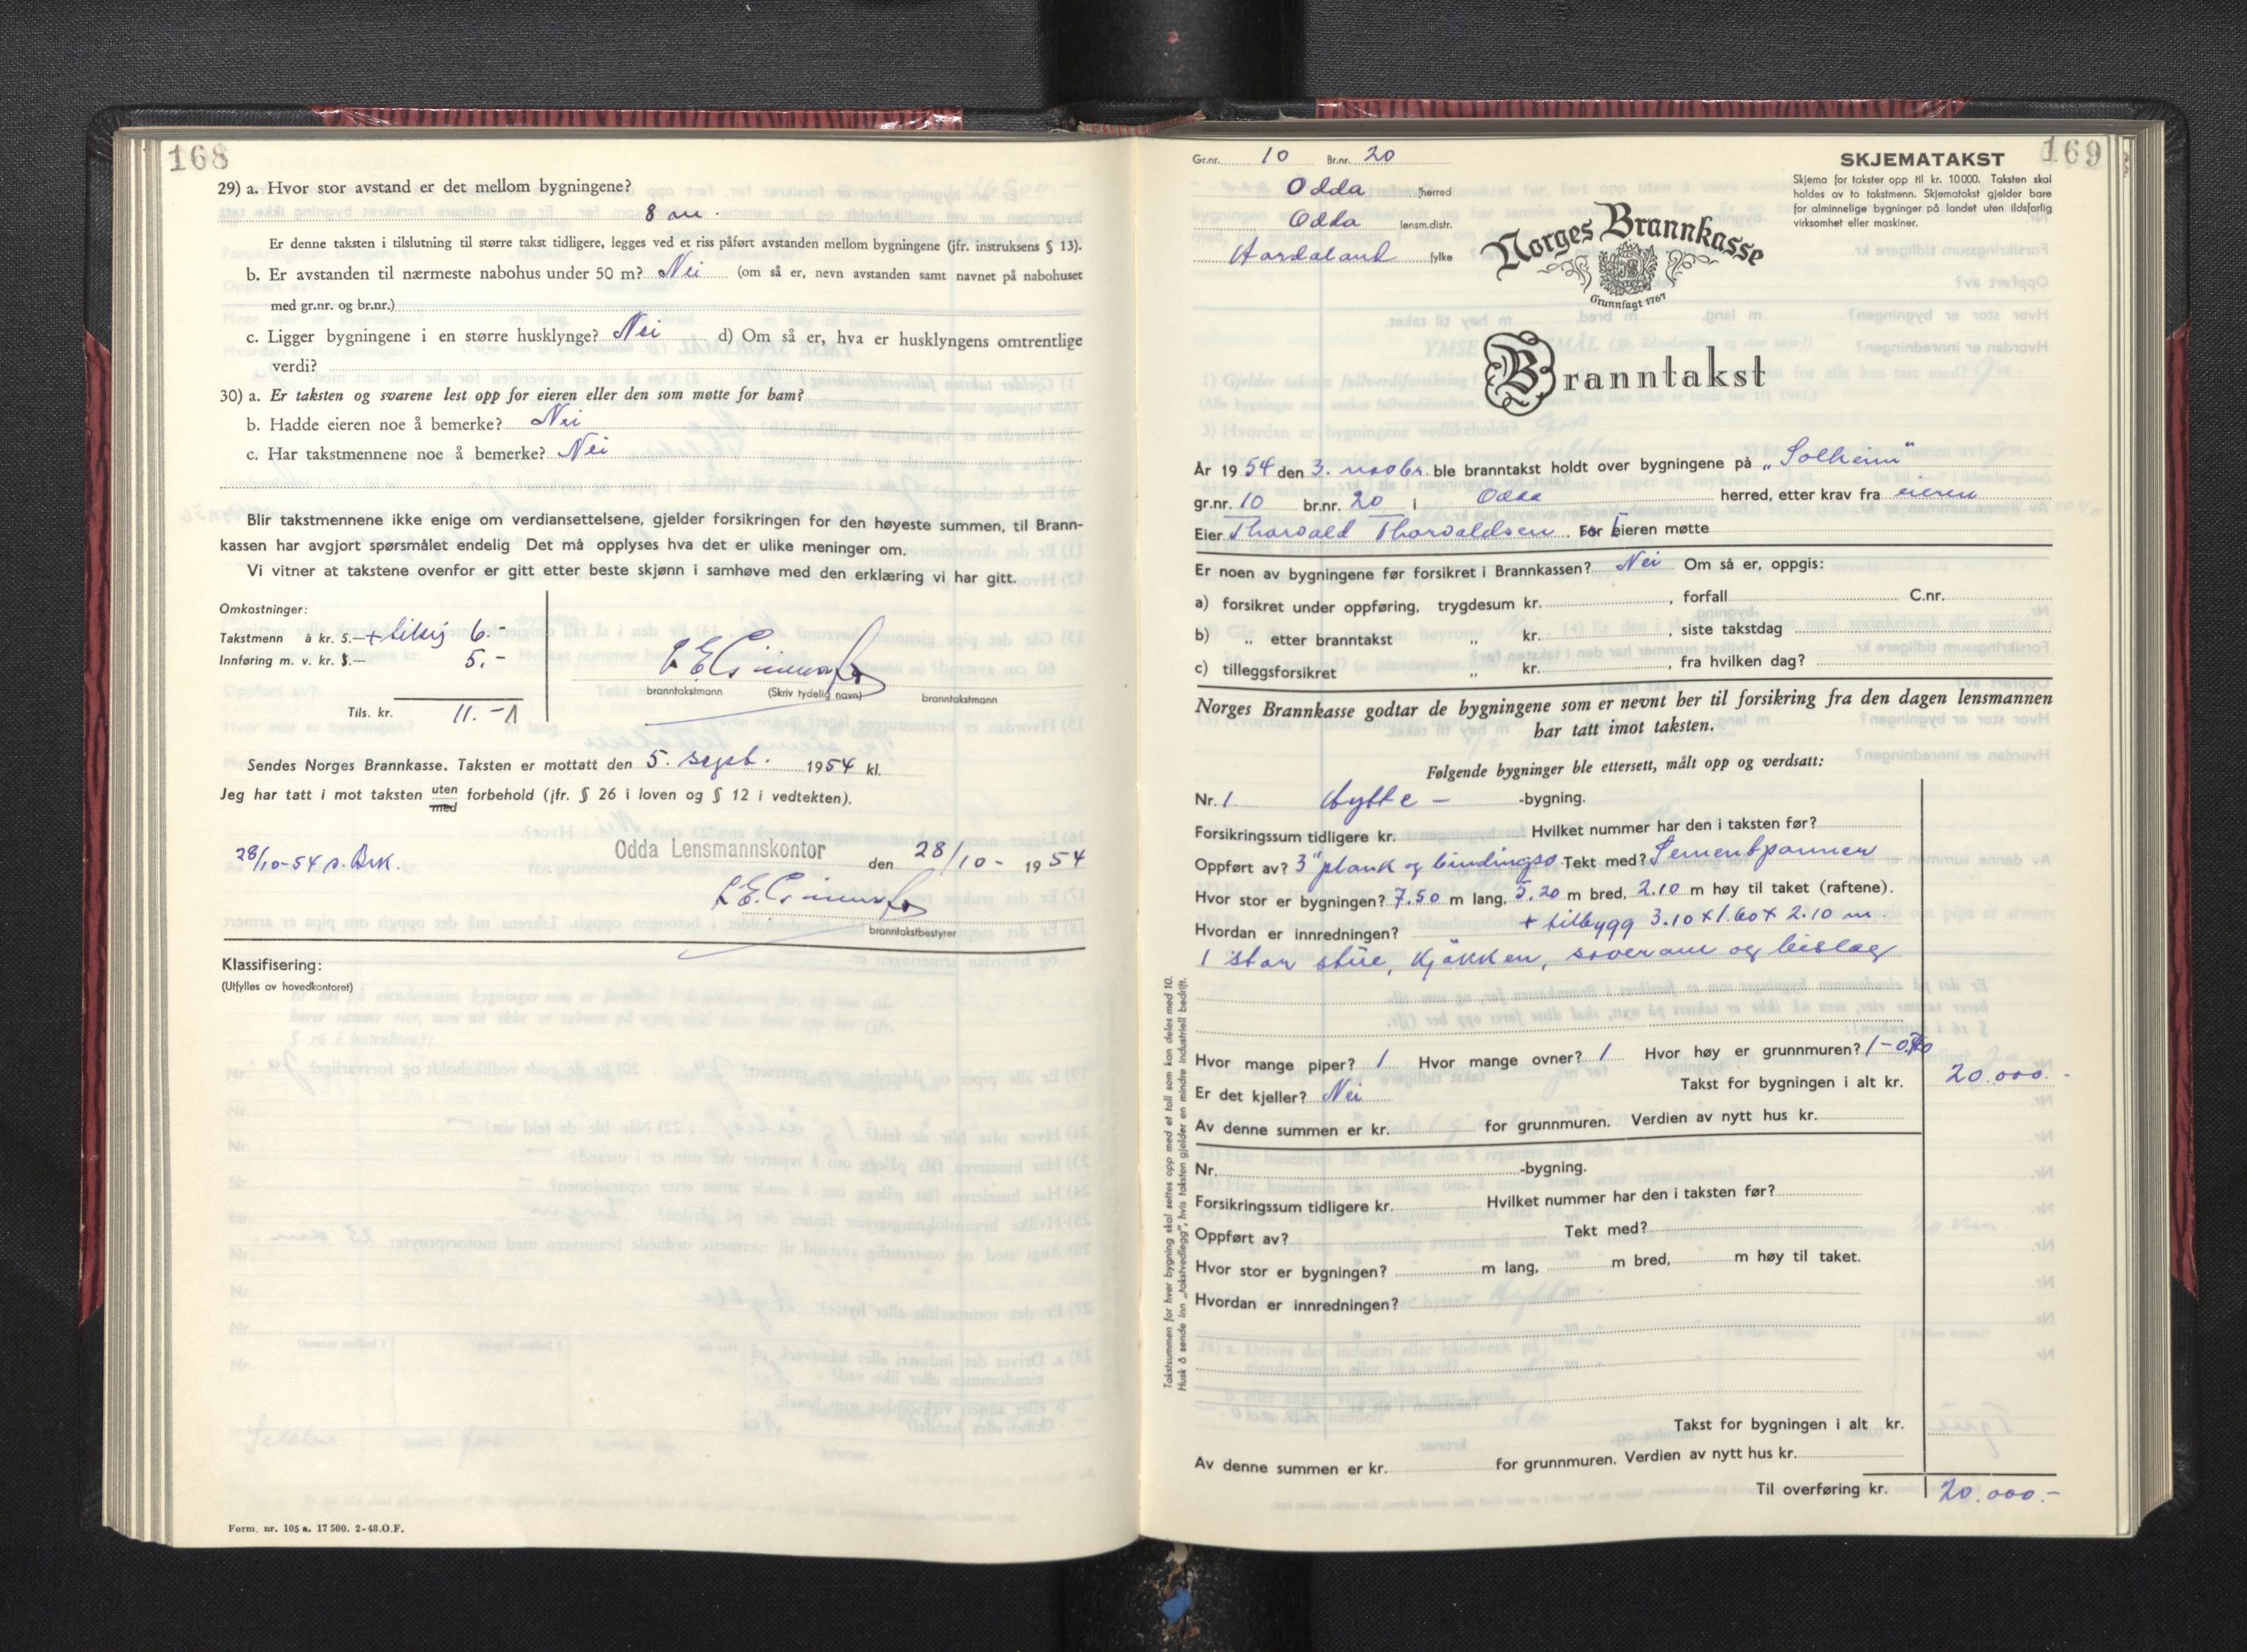 168
29) a. Hvor stor avstand er det mellom bygningene?
8 m.
Er denne taksten i tilslutning til større takst tidligere, legges ved et riss påført avstanden mellom bygningene (jfr. instruksens § 13).
b. Er avstanden til nærmeste nabohus under 50 m? Nei (om så er, nevn avstanden samt navnet på nabohuset
med gr.nr. og br.nr.)
c. Ligger bygningene i en større husklynge? Nei d) Om så er, hva er husklyngens omtrentlige
verdi?
30) a. Er taksten og svarene lest opp for eieren eller den som møtte for ham?
b. Hadde eieren noe å bemerke? Nei
c. Har takstmennene noe å bemerke? Nei
Blir takstmennene ikke enige om verdiansettelsene, gjelder forsikringen for den høyeste summen, til Brann-
kassen har avgjort spørsmålet endelig Det må opplyses hva det er ulike meninger om.
Vi vitner at takstene ovenfor er gitt etter beste skjønn i samhøve med den erklæring vi har gitt.
Omkostninger:
Takstmenn à kr. 5.— + 6.-
Innføring m. v. kr. 5.- 
branntakstmann (Skriv tydelig navn) branntakstmann
Tils. kr. 11.-
Sendes Norges Brannkasse. Taksten er mottatt den 5. sept. 1954 kl.
Jeg har tatt i mot taksten uten forbehold (jfr. § 26 i loven og § 12 i vedtekten).
med
28/10-54 s. Brk.
Odda Lensmannskontor den 28/10- 1954
branntakstbestyrer
Klassifisering:
(Utfylles av hovedkontoret)
Form. nr. 105 a. 17 500. 2-48.O.F.
169
Gr.nr. 10 Br.nr. 20
Odda herred
Odda lensm.distr.
Hordaland fylke
SKJEMATAKST
Skjema for takster opp til kr. 10 000. Taksten skal
holdes av to takstmenn. Skjematakst gjelder bare
for alminnelige bygninger på landet uten ildsfarlig
virksomhet eller maskiner.
Norges Brannkasse
Grunnlagt 1767
Branntakst
År 1954 den 3. novbr. ble branntakst holdt over bygningene på „Solheim"
gr.nr. 10 br.nr. 20 i Odda herred, etter krav fra eieren
Eier Thorvald Thorvaldsen. For Eieren møtte
Er noen av bygningene før forsikret i Brannkassen? Nei Om så er, oppgis:
a) forsikret under oppføring, trygdesum kr. , forfall C.nr.
b) „ etter branntakst „ kr. , siste takstdag
c) tilleggsforsikret „ kr. , fra hvilken dag?
Norges Brannkasse godtar de bygningene som er nevnt her til forsikring fra den dagen lensmannen
har tatt imot taksten.
Følgende bygninger ble ettersett, målt opp og verdsatt:
Nr. 1 Hytte - -bygning.
Forsikringssum tidligere kr. Hvilket nummer har den i taksten før?
Oppført av? 3" plank og bindingsv. Tekt med? Sementpanner
Hvor stor er bygningen? 7.50 m lang, 5.20 m bred, 2.10 m høy til taket (raftene).
+ tilbygg 3.10 x 1.60 x 2.10 m.
Hvordan er innredningen?
1 stor stue, kjøkken, soverom og bislag
Hvor mange piper? 1 Hvor mange ovner? 1 Hvor høy er grunnmuren?
Er det kjeller? Nei Takst for bygningen i alt kr. 20.000.-
Av denne summen er kr. for grunnmuren. Verdien av nytt hus kr.
Nr. -bygning.
Forsikringssum tidligere kr. Hvilket nummer har den i taksten før?
Oppført av? Tekt med?
Hvor stor er bygningen? m lang, m bred, m høy til taket.
Hvordan er innredningen?
Takst for bygningen i alt kr.
Av denne summen er kr. for grunnmuren. Verdien av nytt hus kr.
Til overføring kr. 20.000.-
Takstsummen for hver bygning skal settes opp med et tall som kan deles med 10.
Husk å sende inn „takstvedlegg", hvis taksten gjelder en mindre industriell bedrift.